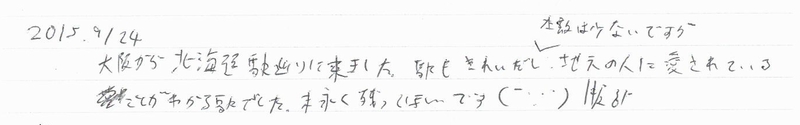 2015.9/24
本数は少ないですが
大阪から北海道駅巡りに来ました。駅もきれいだし、地元の人に愛されている
ことがわかる駅でした。末永く残ってほしいです(^-^)